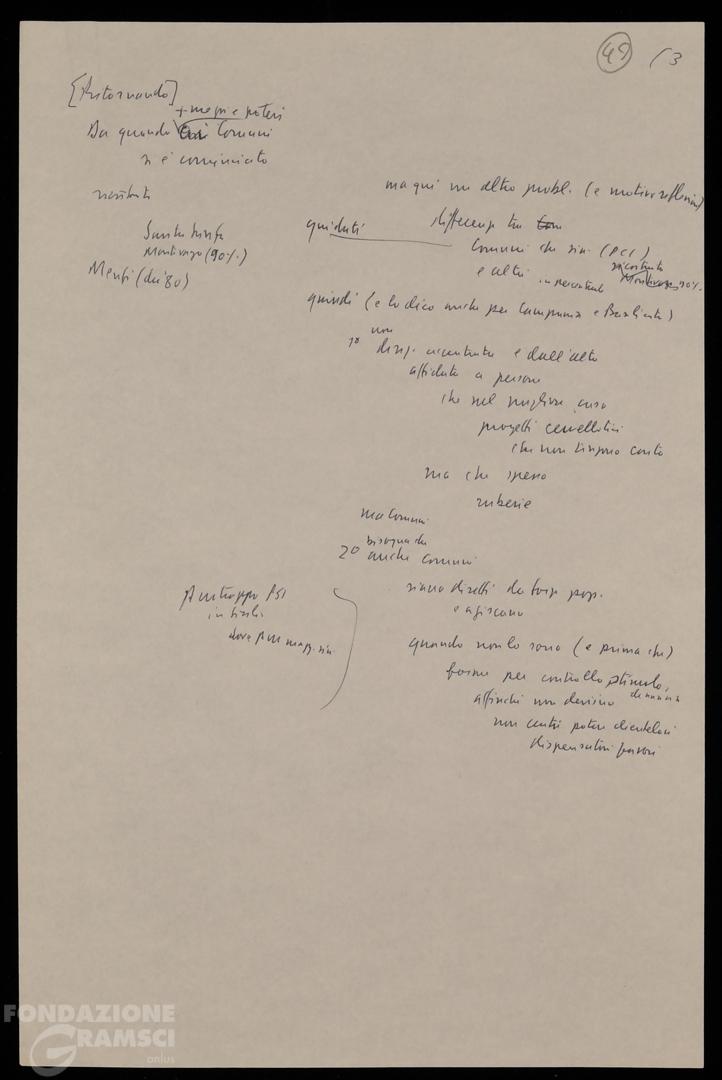 49 / 3
[Ritornando]
+ mezzi e poteri
Da quando ai Comuni
si è cominciato
Santa Ninfa
Montevago (90%)
Menfi (dic 80)
ma qui un altro probl. (e motivo riflessione)
qui dati differenze tra
Comuni che sin. (PCI)
e altri in percentuale
ricostruito
Montevago 90%
quindi (e lo dico anche per Campania e Basilicata)
non
1° direz. accentrata e dall'alto
affidata a persone
che nel migliore caso
progetti cervellotici
che non tengono conto
ma che spesso
ruberie
ma Comuni
bisogna che
2° anche comuni
siano diretti da forze pop.
e agiscano
Purtroppo PSI
in Sicilia
dove PCI magg. sin.
quando non lo sono (e prima che)
forme per controllo, stimolo,
denuncia
affinché non devino
non centri potere clientelari
dispensatori favori
FONDAZIONE
GRAMSCI
onlus